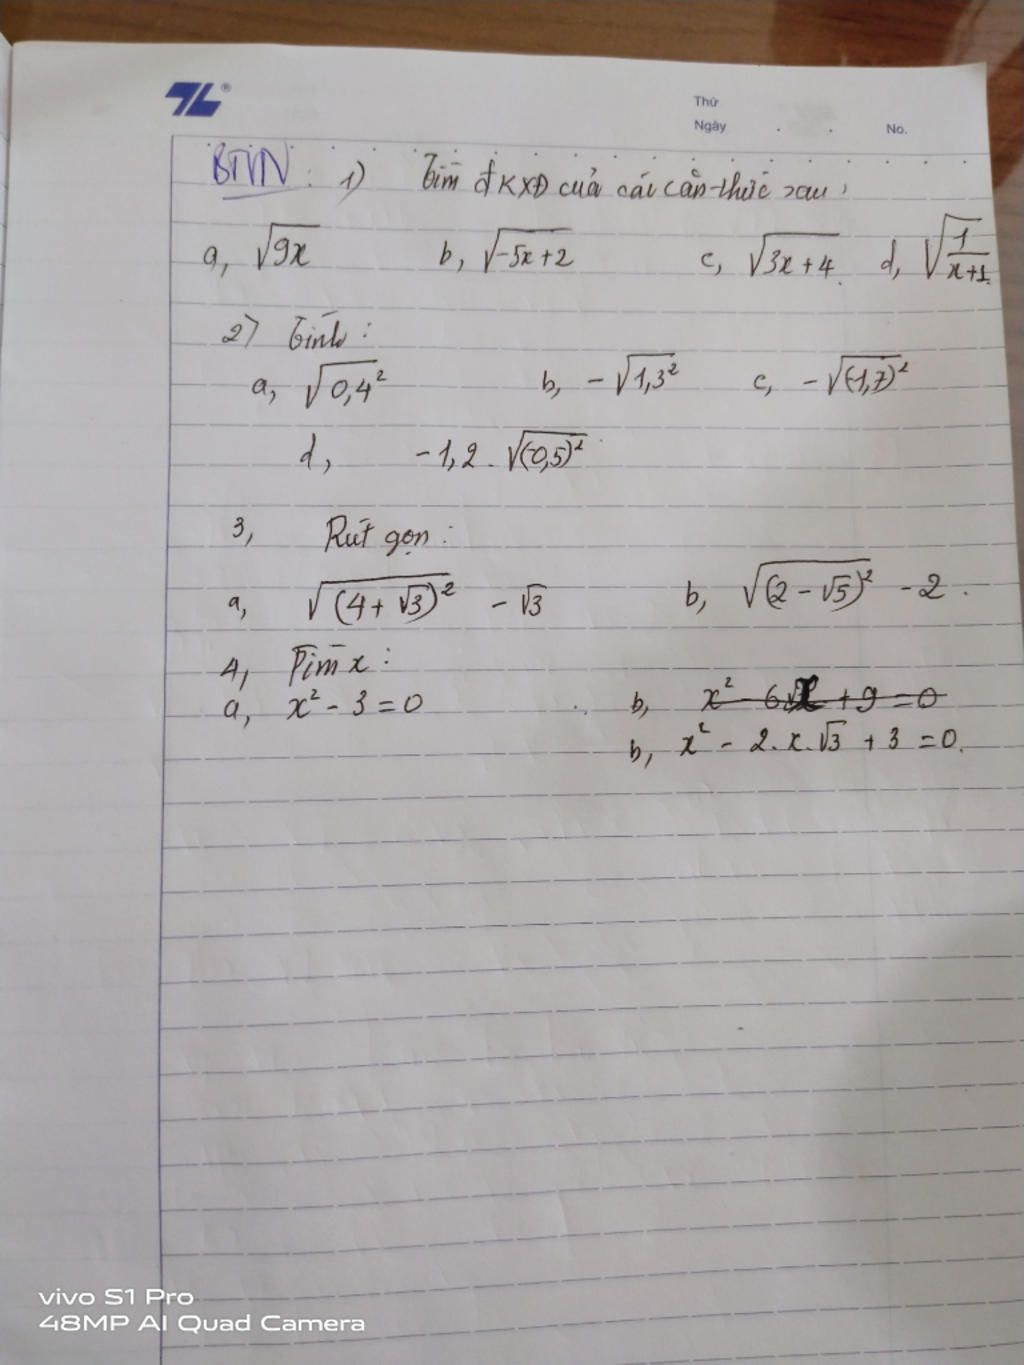 Thứ
Ngày . . No.
BTVN: 1) Tìm đKXĐ của các căn thức sau:
a, √9x b, √-5x+2 c, √3x+4 d, √1/x+1
2) Tính:
a, √0,4² b, -√1,3² c, -√(-1,7)²
d, -1,2.√(-0,5)²
3, Rút gọn:
a, √(4+√3)² - √3 b, √(2-√5)² - 2.
4, Tìm x:
a, x² - 3 = 0 b, x² - 6x + 9 = 0
b, x² - 2.x.√3 + 3 = 0.
vivo S1 Pro
48MP AI Quad Camera